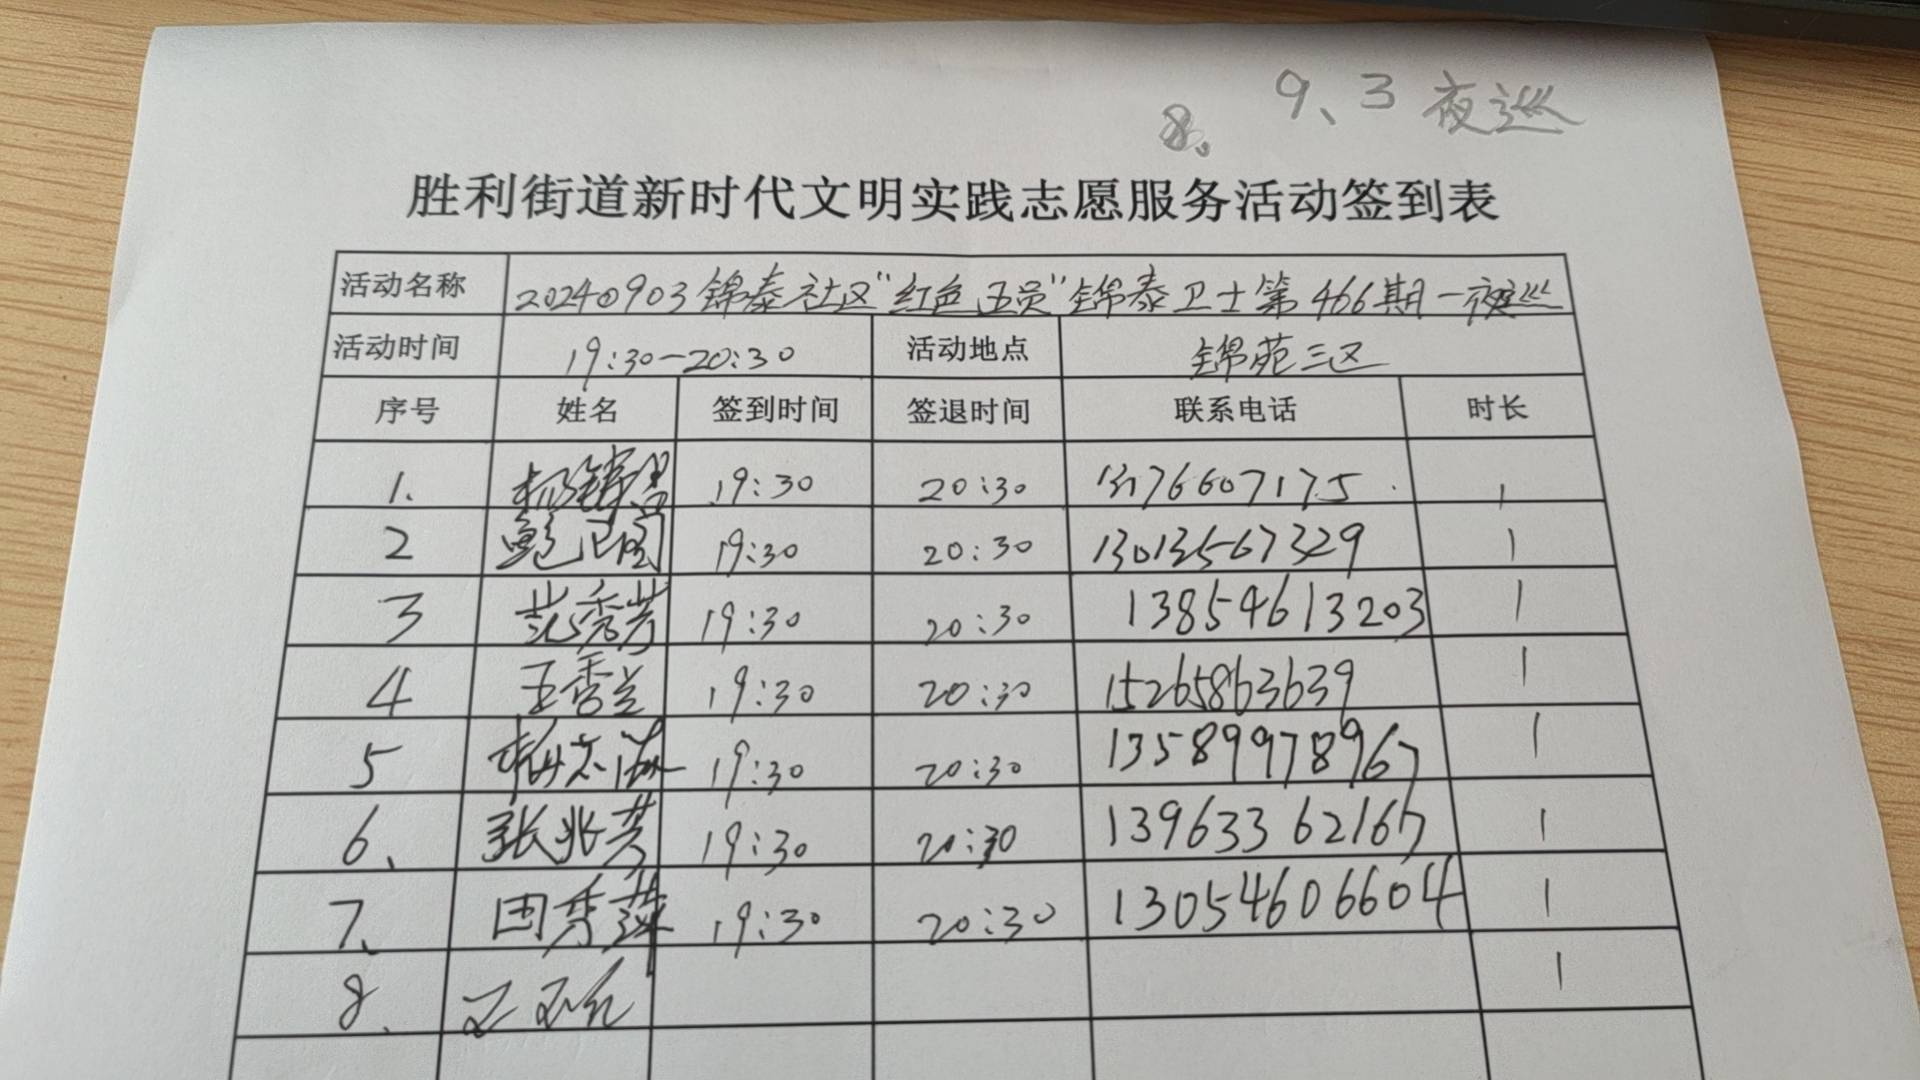 9、3 夜巡
8.
胜利街道新时代文明实践志愿服务活动签到表
活动名称 20240903锦泰社区“红色五员”锦泰卫士第466期—夜巡
活动时间 19:30—20:30 活动地点 锦苑三区
序号 姓名 签到时间 签退时间 联系电话 时长
1. 19:30 20:30 13176607175 1
2 鲍卫国 19:30 20:30 13013567329 1
3 范秀芳 19:30 20:30 13854613203 1
4 王秀兰 19:30 20:30 15265863639 1
5 19:30 20:30 13589978967 1
6、 张兆芳 19:30 20:30 13963362167 1
7、 田秀萍 19:30 20:30 13054606604 1
8、 1